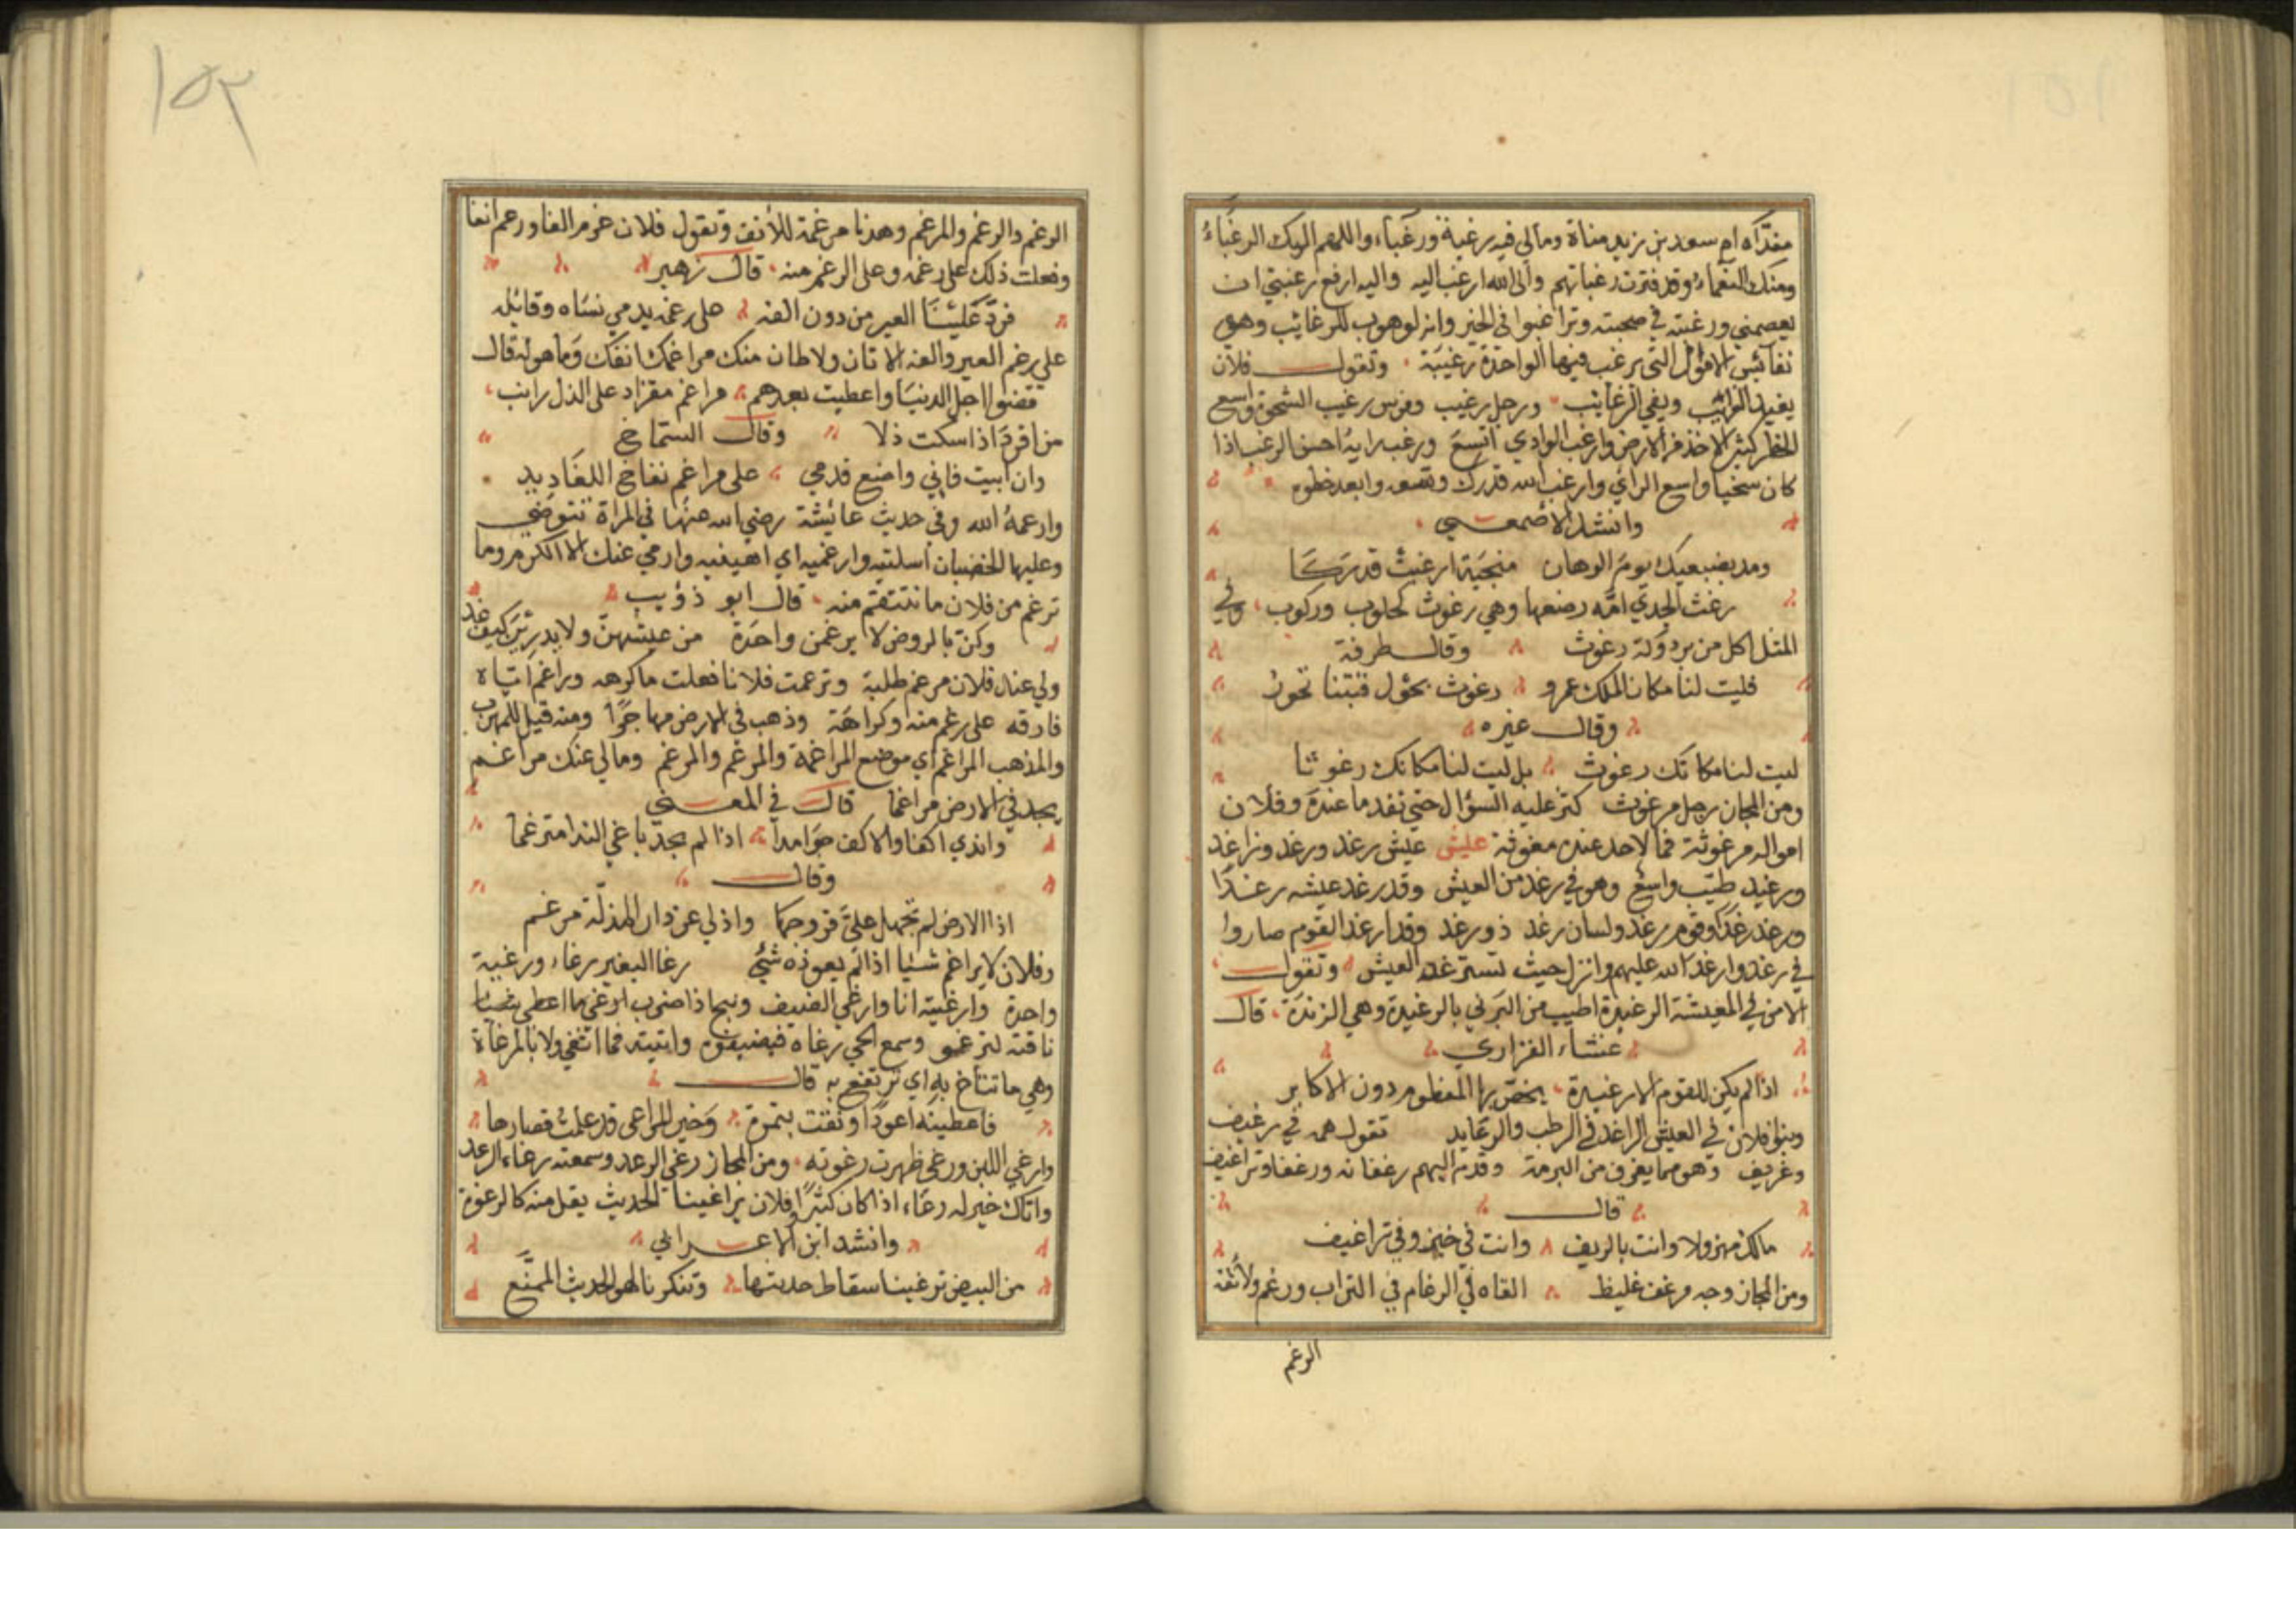 مفداه ام سعد بن زيد مناة ومالي فيه رغبة ورغباء واللهم اليك الرغباء
ومنك النعماء وقد فترت رغباتهم والى الله ارغب اليه واليه ارفع رغبتي ان
يعصمني ورغبته في صحبته وتراغبوا في الخير وانه لوهوب للرغائب وهي
نفائس الاموال التي يرغب فيها الواحدة رغيبة وتقول فلان
يفيد الغرائب ويفي الرغايب ورجل رغيب وفرس رغيب الشحوة واسع
الخطر كثير الاخذ من الارض وارغب الوادي اتسع ورغب رايه احسن الرغب اذا
كان سخيا واسع الراي وارغب الله قدرك وسعه وابعد خطوه
وانشد الاصمعي
ومد بضبعيك يوم الرهان منجبة ارغبت قدركا
رغث الجدي امه رضعها وهي رغوث كحلوب وركوب وفي
المثل اكل من برذونة رغوث وقال طرفة
فليت لنا مكان الملك عمرو رغوث بحول قبتنا تخور
وقال غيره
ليت لنا مكانك رغوث بل ليت لنا مكانك رغوثا
ومن المجاز رجل مرغوث كثر عليه السؤال حتى نفد ما عنده وفلان
امواله مرغوثة فما لاحد عنده مغوثة عليش عيش رغد ورغد وراغد
ورغيد طيب واسع وهو في رغد من العيش وقد رغد عيشه رغدا
ورغد رغدا وقوم رغد ولسان رغد ذو رغد وقد ارغد القوم صاروا
في رغد وارغد الله عليهم وانزل حيث تسترغد العيش وتقول
الامن في المعيشة الرغيدة اطيب من البرني بالرغيدة وهي الزبدة قال
عنشاء الفزاري
اذا لم يكن للقوم الا رغيدة يخص بها المفطوم دون الاكابر
وبنو فلان في العيش الراغد في الرطب والرغايد تقول هم في رغيف
وغريف وهو مما يغرف من البرمة وقدم اليهم رغفانه ورغفا وتراغيف
قال
مالك مهزولا وانت بالريف وانت في خبز وفي تراغيف
ومن المجاز وجه مرغف غليظ القاه في الرغام في التراب ورغم ولانفه
الرغم
١٥٣
الرغم والرغم والمرغم وهذا مرغمة للأنف وتقول فلان غرم الفا ورغم انفا
وفعلت ذلك على رغمه وعلى الرغم منه قال زهير
فرد علينا العير من دون الفه على رغمه يدمي نساه وقائله
على رغم العير والفه الاتان ولاطان منك مراغمك انفك وما هوله قال
قضوا اجل الدنيا واعطيت بعدهم مراغم مقراد على الذل راتب
من اقرد اذا سكت ذلا وقال الشماخ
وان ابيت فاني واضع قدمي على مراغم نفاخ اللغاديد
وارغمه الله وفي حديث عائشة رضي الله عنها في المراة تتوضى
وعليها الخضاب اسلتيه وارغميه اي اهينيه وارمي عنك الا اكرم وما
ترغم من فلان ما تنتقم منه قال ابو ذؤيب
وكن بالروض لا يرغمن واحدة من عيشهن ولا يدرين كيف غد
ولي عند فلان مرغم طلبة وترغمت فلانا فعلت ما كرهه وراغم اباه
فارقه على رغم منه وكراهة وذهب في الارض مهاجرا ومنه قيل للمهرب
والمذهب المراغم اي موضع المراغمة والمرغم والمرغم ومالي عنك مراغم
يجد في الارض مراغما قال في المعنى
واندي اكفا والاكف جوامد اذا لم يجد باغي الندا مترغما
وقال
اذا الارض لم تجهل علي فروجها واذ لي عن دار المذلة مرغم
وفلان لا يراغم شيئا اذا لم يعوزه شئ رغا البعير رغاء ورغية
واحدة وارغيته انا وارغي الضيف ونبحا ذا ضرب ارغى ما اعطى
ناقته لترغو وسمع الحي رغاه فيضيفوه واتيته فما اثغي ولا بالمرغاة
وهي ما تناخ به اي ترتفع به قال
فاعطيته اعودا ونقت بتمرة وخير المراعى قد علمت قصارها
وارغي اللبن ورغى ظهرت رغوته ومن المجاز رغى الرعد وسمعته رغاء الرعد
واتاك خير له رغاء اذا كان كثيرا وفلان يراغينا الحديث يقل منه كالرغوة
وانشد ابن الاعرابي
من البيض ترغينا سقاط حديثها وتنكرنا لهو الحديث الممنع